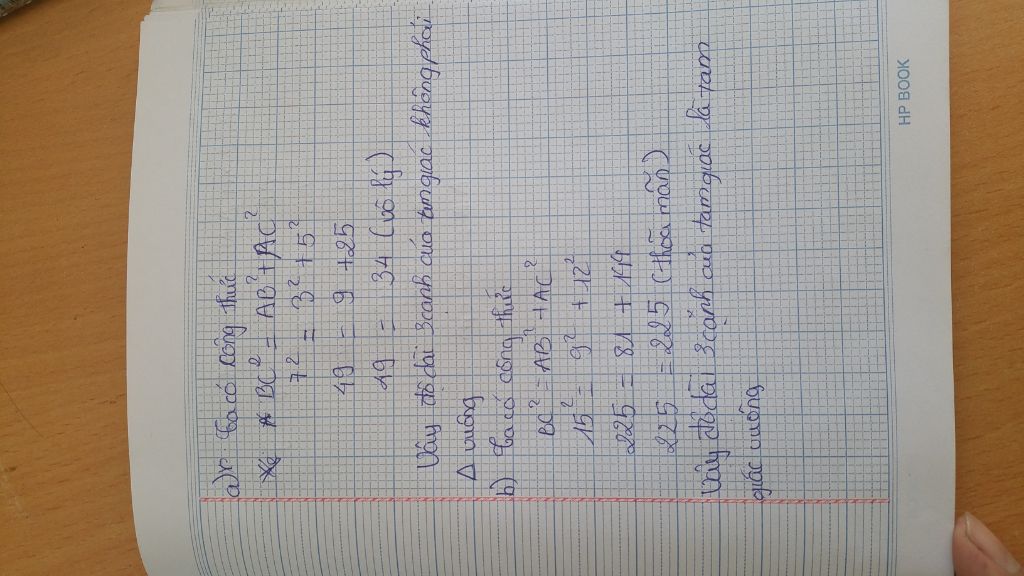 a) Ta có công thức
BC² = AB² + AC²
7² = 3² + 5²
49 = 9 + 25
49 = 34 (vô lý)
Vậy độ dài 3 cạnh của tam giác không phải
Δ vuông
b) Ta có công thức
BC² = AB² + AC²
15² = 9² + 12²
225 = 81 + 144
225 = 225 (thõa mãn)
Vậy độ dài 3 cạnh của tam giác là tam
giác vuông
HP BOOK